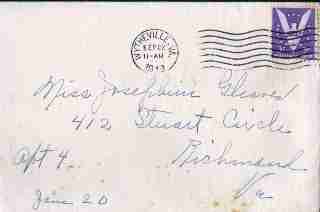 WYTHEVILLE, VA.
11-AM
1943
Miss Josephine Gleaves
412 Stuart Circle
Apt 4
Richmond
Va
June 20